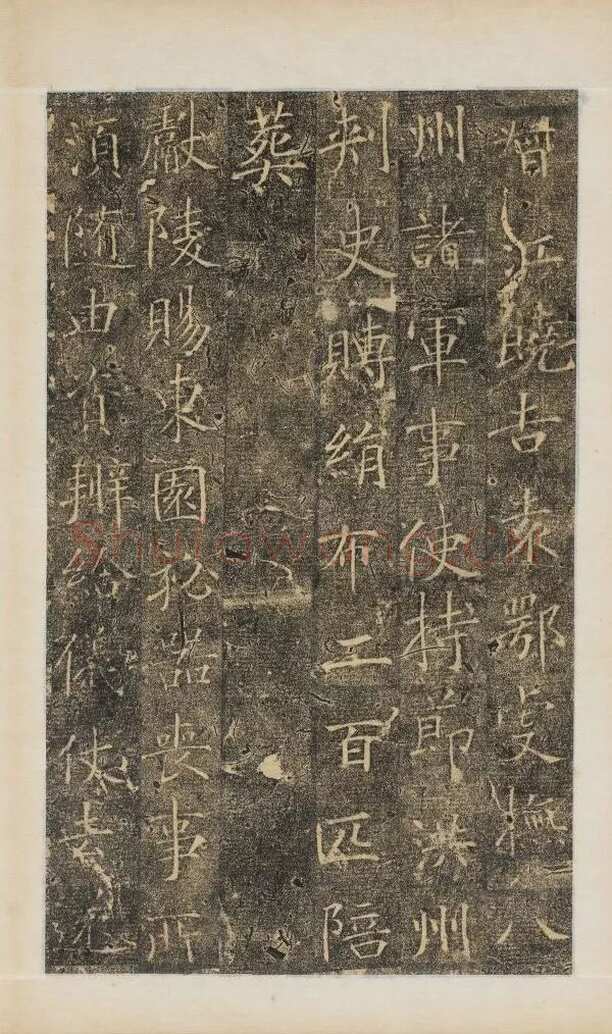 贈江饒吉袁鄂虔撫八
州諸軍事使持節洪州
刺史賻絹布二百匹陪
葬
獻陵賜東園祕器喪事所
須隨由資辦給儀仗去